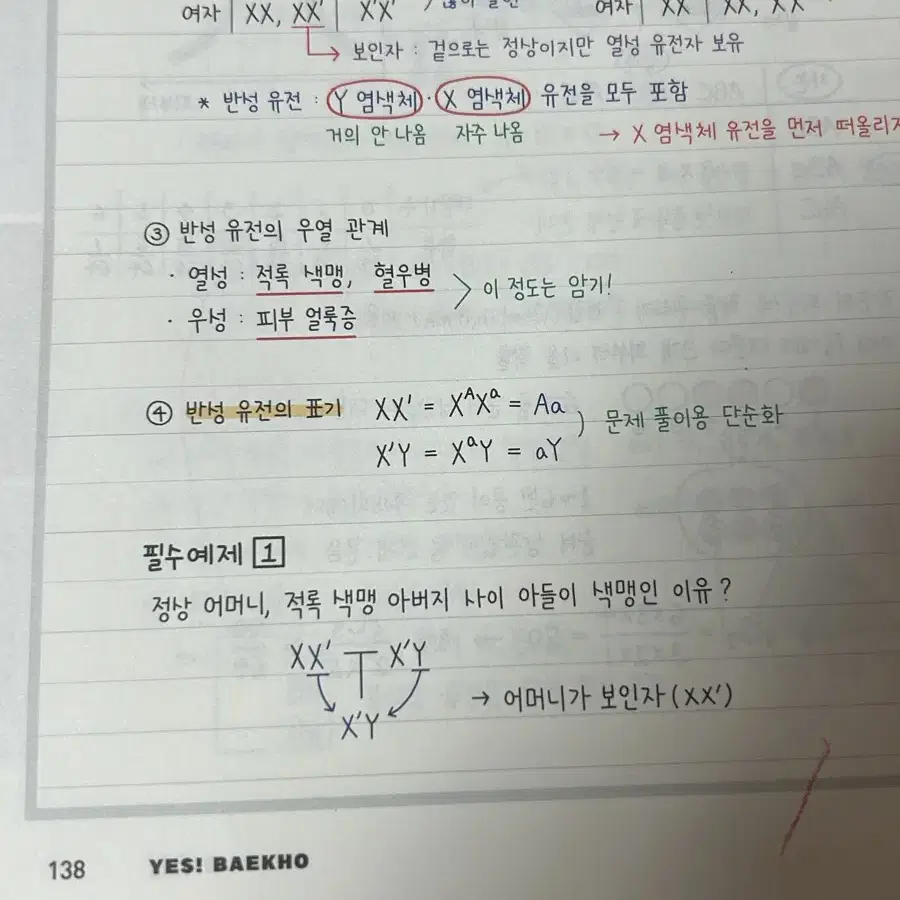 여자 | XX, XX' | X'X'
여자 | XX | XX, XX
보인자 : 겉으로는 정상이지만 열성 유전자 보유
* 반성 유전 : Y 염색체 · X 염색체 유전을 모두 포함
거의 안 나옴 자주 나옴 → X 염색체 유전을 먼저 떠올리자
③ 반성 유전의 우열 관계
· 열성 : 적록 색맹, 혈우병
· 우성 : 피부 얼룩증
이 정도는 암기!
④ 반성 유전의 표기 XX' = XᴬXᵃ = Aa
X'Y = XᵃY = aY
문제 풀이용 단순화
필수예제 1
정상 어머니, 적록 색맹 아버지 사이 아들이 색맹인 이유?
XX' X'Y
X'Y → 어머니가 보인자(XX')
138 YES! BAEKHO